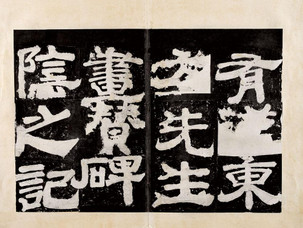 有東
先生
畫贊碑
陰之記